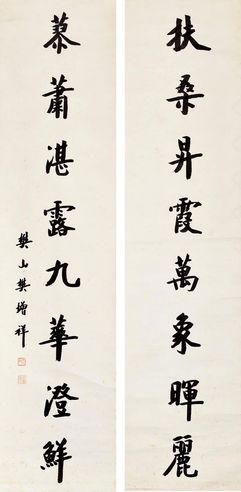 扶桑昇霞萬象暉麗
蓁蕭湛露九華澄鮮
樊山樊增祥